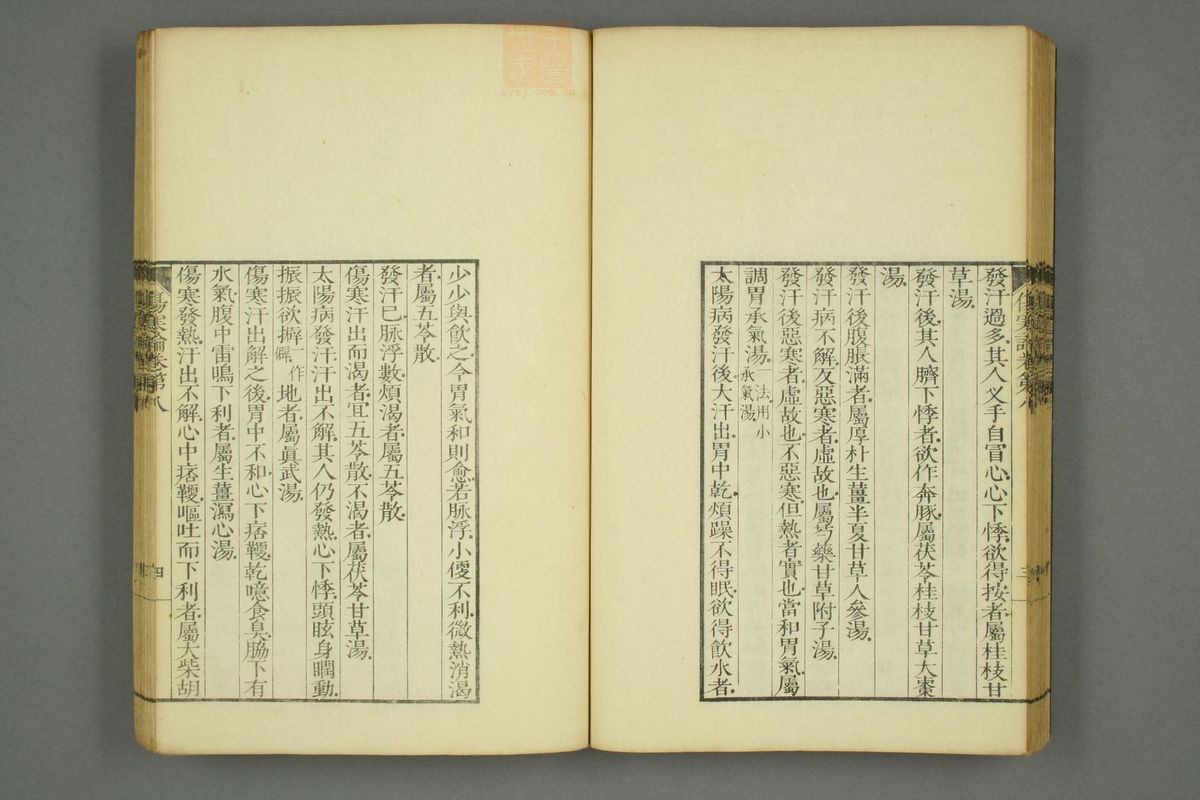 發汗過多其人叉手自冒心心下悸欲得按者屬桂枝甘
草湯
發汗後其人臍下悸者欲作奔豚屬茯苓桂枝甘草大棗
湯
發汗後腹脹滿者屬厚朴生薑半夏甘草人參湯
發汗病不解反惡寒者虛故也屬芍藥甘草附子湯
發汗後惡寒者虛故也不惡寒但熱者實也當和胃氣屬
調胃承氣湯一法用小承氣湯
太陽病發汗後大汗出胃中乾煩躁不得眠欲得飲水者
少少與飲之令胃氣和則愈若脉浮小便不利微熱消渴
者屬五苓散
發汗已脉浮數煩渴者屬五苓散
傷寒汗出而渴者宜五苓散不渴者屬茯苓甘草湯
太陽病發汗汗出不解其人仍發熱心下悸頭眩身瞤動
振振欲擗一作僻地者屬眞武湯
傷寒汗出解之後胃中不和心下痞鞕乾噫食臭脇下有
水氣腹中雷鳴下利者屬生薑瀉心湯
傷寒發熱汗出不解心中痞鞕嘔吐而下利者屬大柴胡
傷寒論卷第八
四
zysj.com.cn